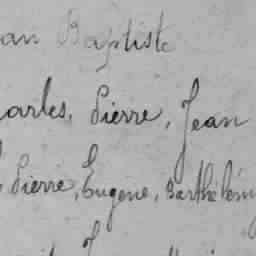 an Baptiste
arles, Pierre, Jean
Pierre, Eugene, Barthélem